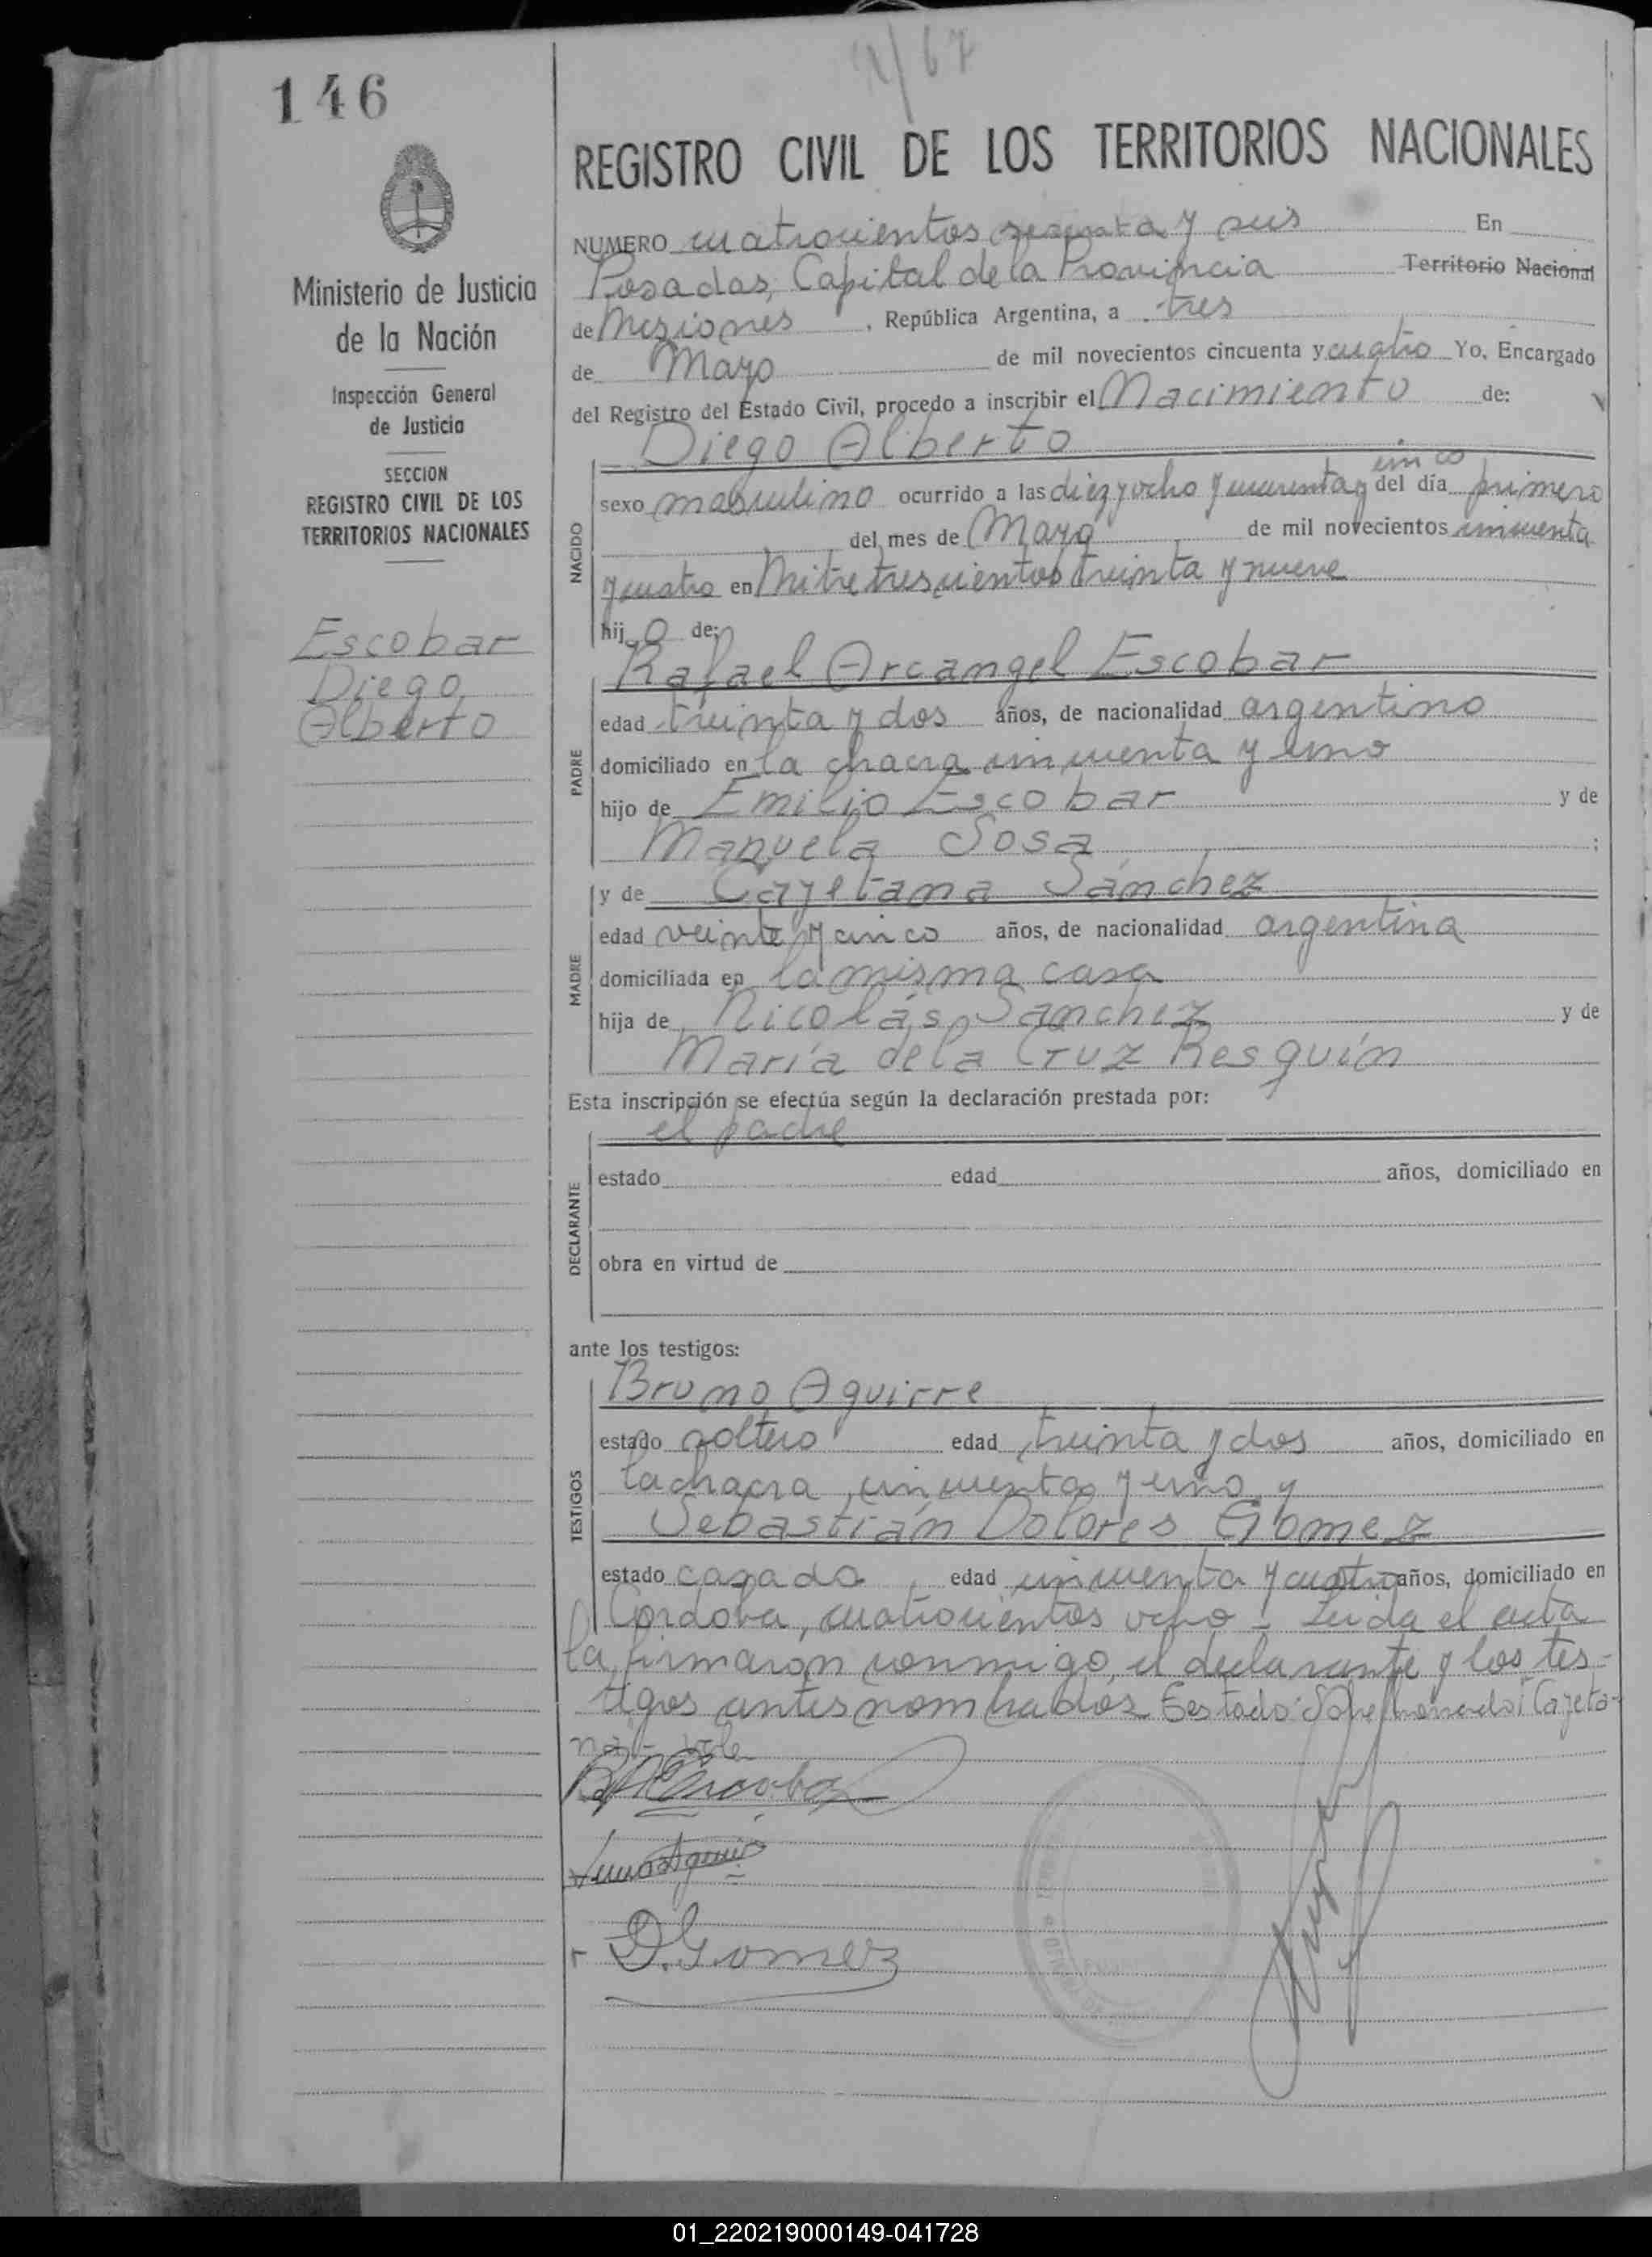 146
REGISTRO CIVIL DE LOS TERRITORIOS NACIONALES
Ministerio de Justicia
de la Nación
Inspección General
de Justicia
SECCION
REGISTRO CIVIL DE LOS
TERRITORIOS NACIONALES
Escobar
Diego
Alberto
NUMERO cuatrocientos y seis En
Posadas, Capital de la Provincia Territorio Nacional
de Misiones, República Argentina, a tres
de Mayo de mil novecientos cincuenta y cuatro Yo, Encargado
del Registro del Estado Civil, procedo a inscribir el Nacimiento de:
Diego Alberto
NACIDO
cinco
sexo masculino ocurrido a las diez y ocho y cuarenta y del día primero
del mes de Mayo de mil novecientos cincuenta
y cuatro en Mitre trescientos treinta y nueve
hijo de:
PADRE
Rafael Arcangel Escobar
edad treinta y dos años, de nacionalidad argentino
domiciliado en la chacra cincuenta y uno
hijo de Emilio Escobar y de
Manuela Sosa;
MADRE
y de Cayetana Sánchez
edad veinte y cinco años, de nacionalidad argentina
domiciliada en la misma casa
hija de Nicolás Sánchez y de
María de la Cruz Resquín
Esta inscripción se efectúa según la declaración prestada por:
DECLARANTE
el padre
estado edad años, domiciliado en
obra en virtud de
ante los testigos:
TESTIGOS
Bruno Aguirre
estado soltero edad treinta y dos años, domiciliado en
la chacra cincuenta y uno y
Sebastián Dolores Gómez
estado casado edad cincuenta y cuatro años, domiciliado en
Córdoba, cuatrocientos ocho - Leída el acta
la firmaron conmigo, el declarante y los tes-
tigos antes nombrados Cayeta-
na - vale
D. Gomez
01_220219000149-041728